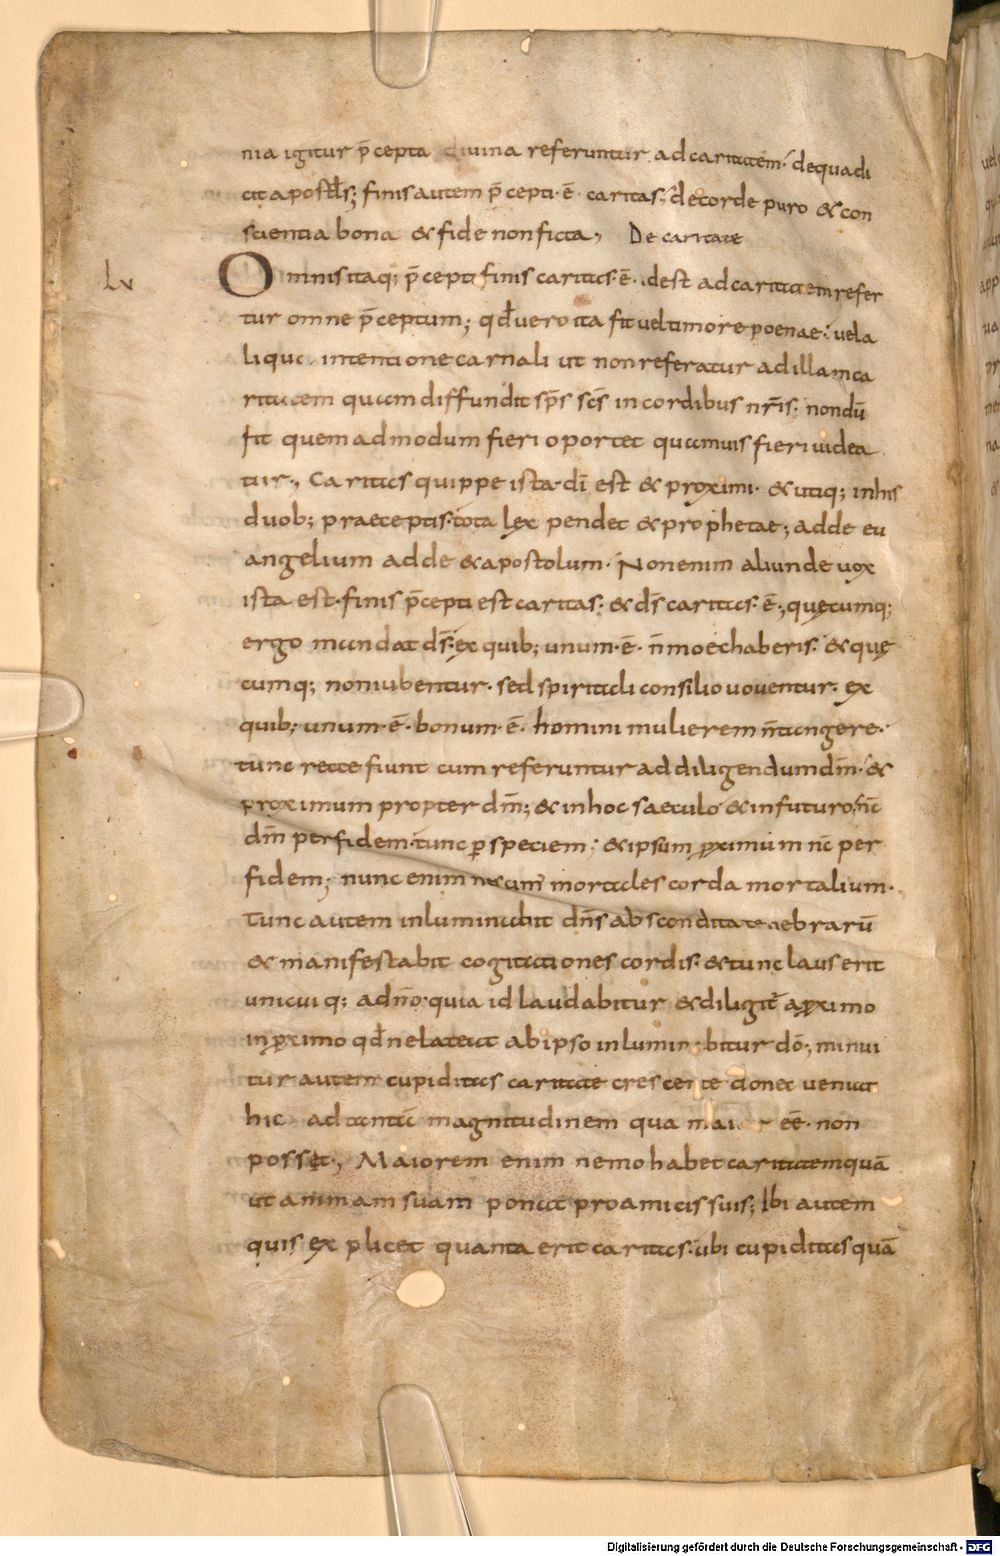 nia igitur p̄cepta divina referuntur ad caritatem· de qua di
cit apostl̄s; finis autem p̄cepti·ē· caritas; de corde puro & con
scientia bona & fide non ficta, De caritate
Lv Omnis itaq; p̄cepti finis caritas·ē· idest ad caritatem refer
tur omne p̄ceptum; qđ vero ita fit vel timore poenae· vel a
liqua intentione carnali ut non referatur ad illam ca
ritatem quam diffundit sp̄s sc̄s in cordibus nr̄is· nondū
fit quemadmodum fieri oportet quamuis fieri uidea
tur., Caritas quippe ista·dī est & proximi· & utiq; in his
duob; praeceptis·tota lex pendet & prophetae; adde eu
angelium adde & apostolum· Non enim aliunde uox
ista est·finis p̄cepti est caritas· & ds̄ caritas·ē·, quęcumq;
ergo mandat ds̄·ex quib; unum·ē· n̄ moechaberis· & quę
cumq; non iubentur· sed spiritali consilio voventur· ex
quib; unum·ē· bonum·ē· homini mulierem n̄ tangere·
tunc recte fiunt cum referuntur ad diligendum dm̄· &
proximum propter dm̄; & in hoc saeculo & in futuro· nc̄
dm̄ per fidem·tunc p̱ speciem; & ipsum ꝓximum nc̄ per
fidem; nunc enim nescim̄ mortales corda mortalium·
Tunc autem inluminabit dn̄s abscondita tenebrarū
& manifestabit cogitationes cordis· & tunc laus erit
unicuiq; a dn̄o·quia id laudabitur & diligit̄ a ꝓximo
in ꝓximo qđ ne lateat ab ipso inluminabitur dō·, minui
tur autem cupiditas caritate crescente donec veniat
hic ad tantā magnitudinem qua maior eē· non
possit·, Maiorem enim nemo habet caritatem quā
ut animam suam ponat pro amicis suis; Ibi autem
quis explicet quanta erit caritas· ubi cupiditas quā
Digitalisierung gefördert durch die Deutsche Forschungsgemeinschaft - DFG